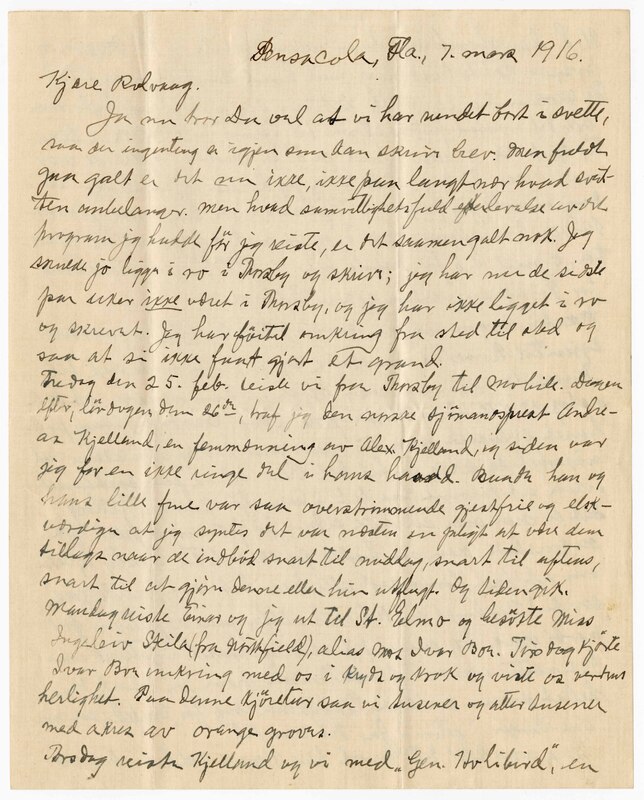 Pensacola, Fla., 7. mars 1916.
Kjære Rølvaag.
Ja nu tror Du vel at vi har rendet bort i svette,
saa der ingenting er igjen som kan skrive brev. Men fuldt
saa galt er det nu ikke, ikke paa langt nær hvad svet-
ten anbelanger. Men hvad samvittighetsfuld efterlevelse av det
program jeg hadde før jeg reiste, er det saamen galt nok. Jeg
skulde jo ligge i ro i Thorsby og skrive; jeg har nu de sidste
par uker ikke været i Thorsby, og jeg har ikke ligget i ro
og skrevet. Jeg har føitet omkring fra sted til sted og
saa at si ikke faat gjort et grand.
Fredag den 25. feb. reiste vi fra Thorsby til Mobile. Dagen
efter, lørdagen den 26de, traf jeg den norske sjømandsprest Andre-
as Kjelland, en femmenning av Alex. Kjelland, og siden var
jeg for en ikke ringe del i hans haand. Baade han og
hans lille frue var saa overstrømmende gjestfrie og elsk-
værdige at jeg syntes det var næsten en pligt at være dem
tillags naar de indbød snart til middag, snart til aftens,
snart til at gjøre denne eller hin utflugt. Og tiden gik.
Mandag reiste Einar og jeg ut til St. Elmo og besøkte Miss
Ingeleiv Skile (fra Northfield), alias Mrs Ivar Boe. Tirsdag kjørte
Ivar Boe omkring med os i kryds og krok og viste os verdens
herlighet. Paa denne kjøretur saa vi tusener og atter tusener
med acres av orange groves.
Torsdag reiste Kjelland og vi med „Gen. Holibird", en